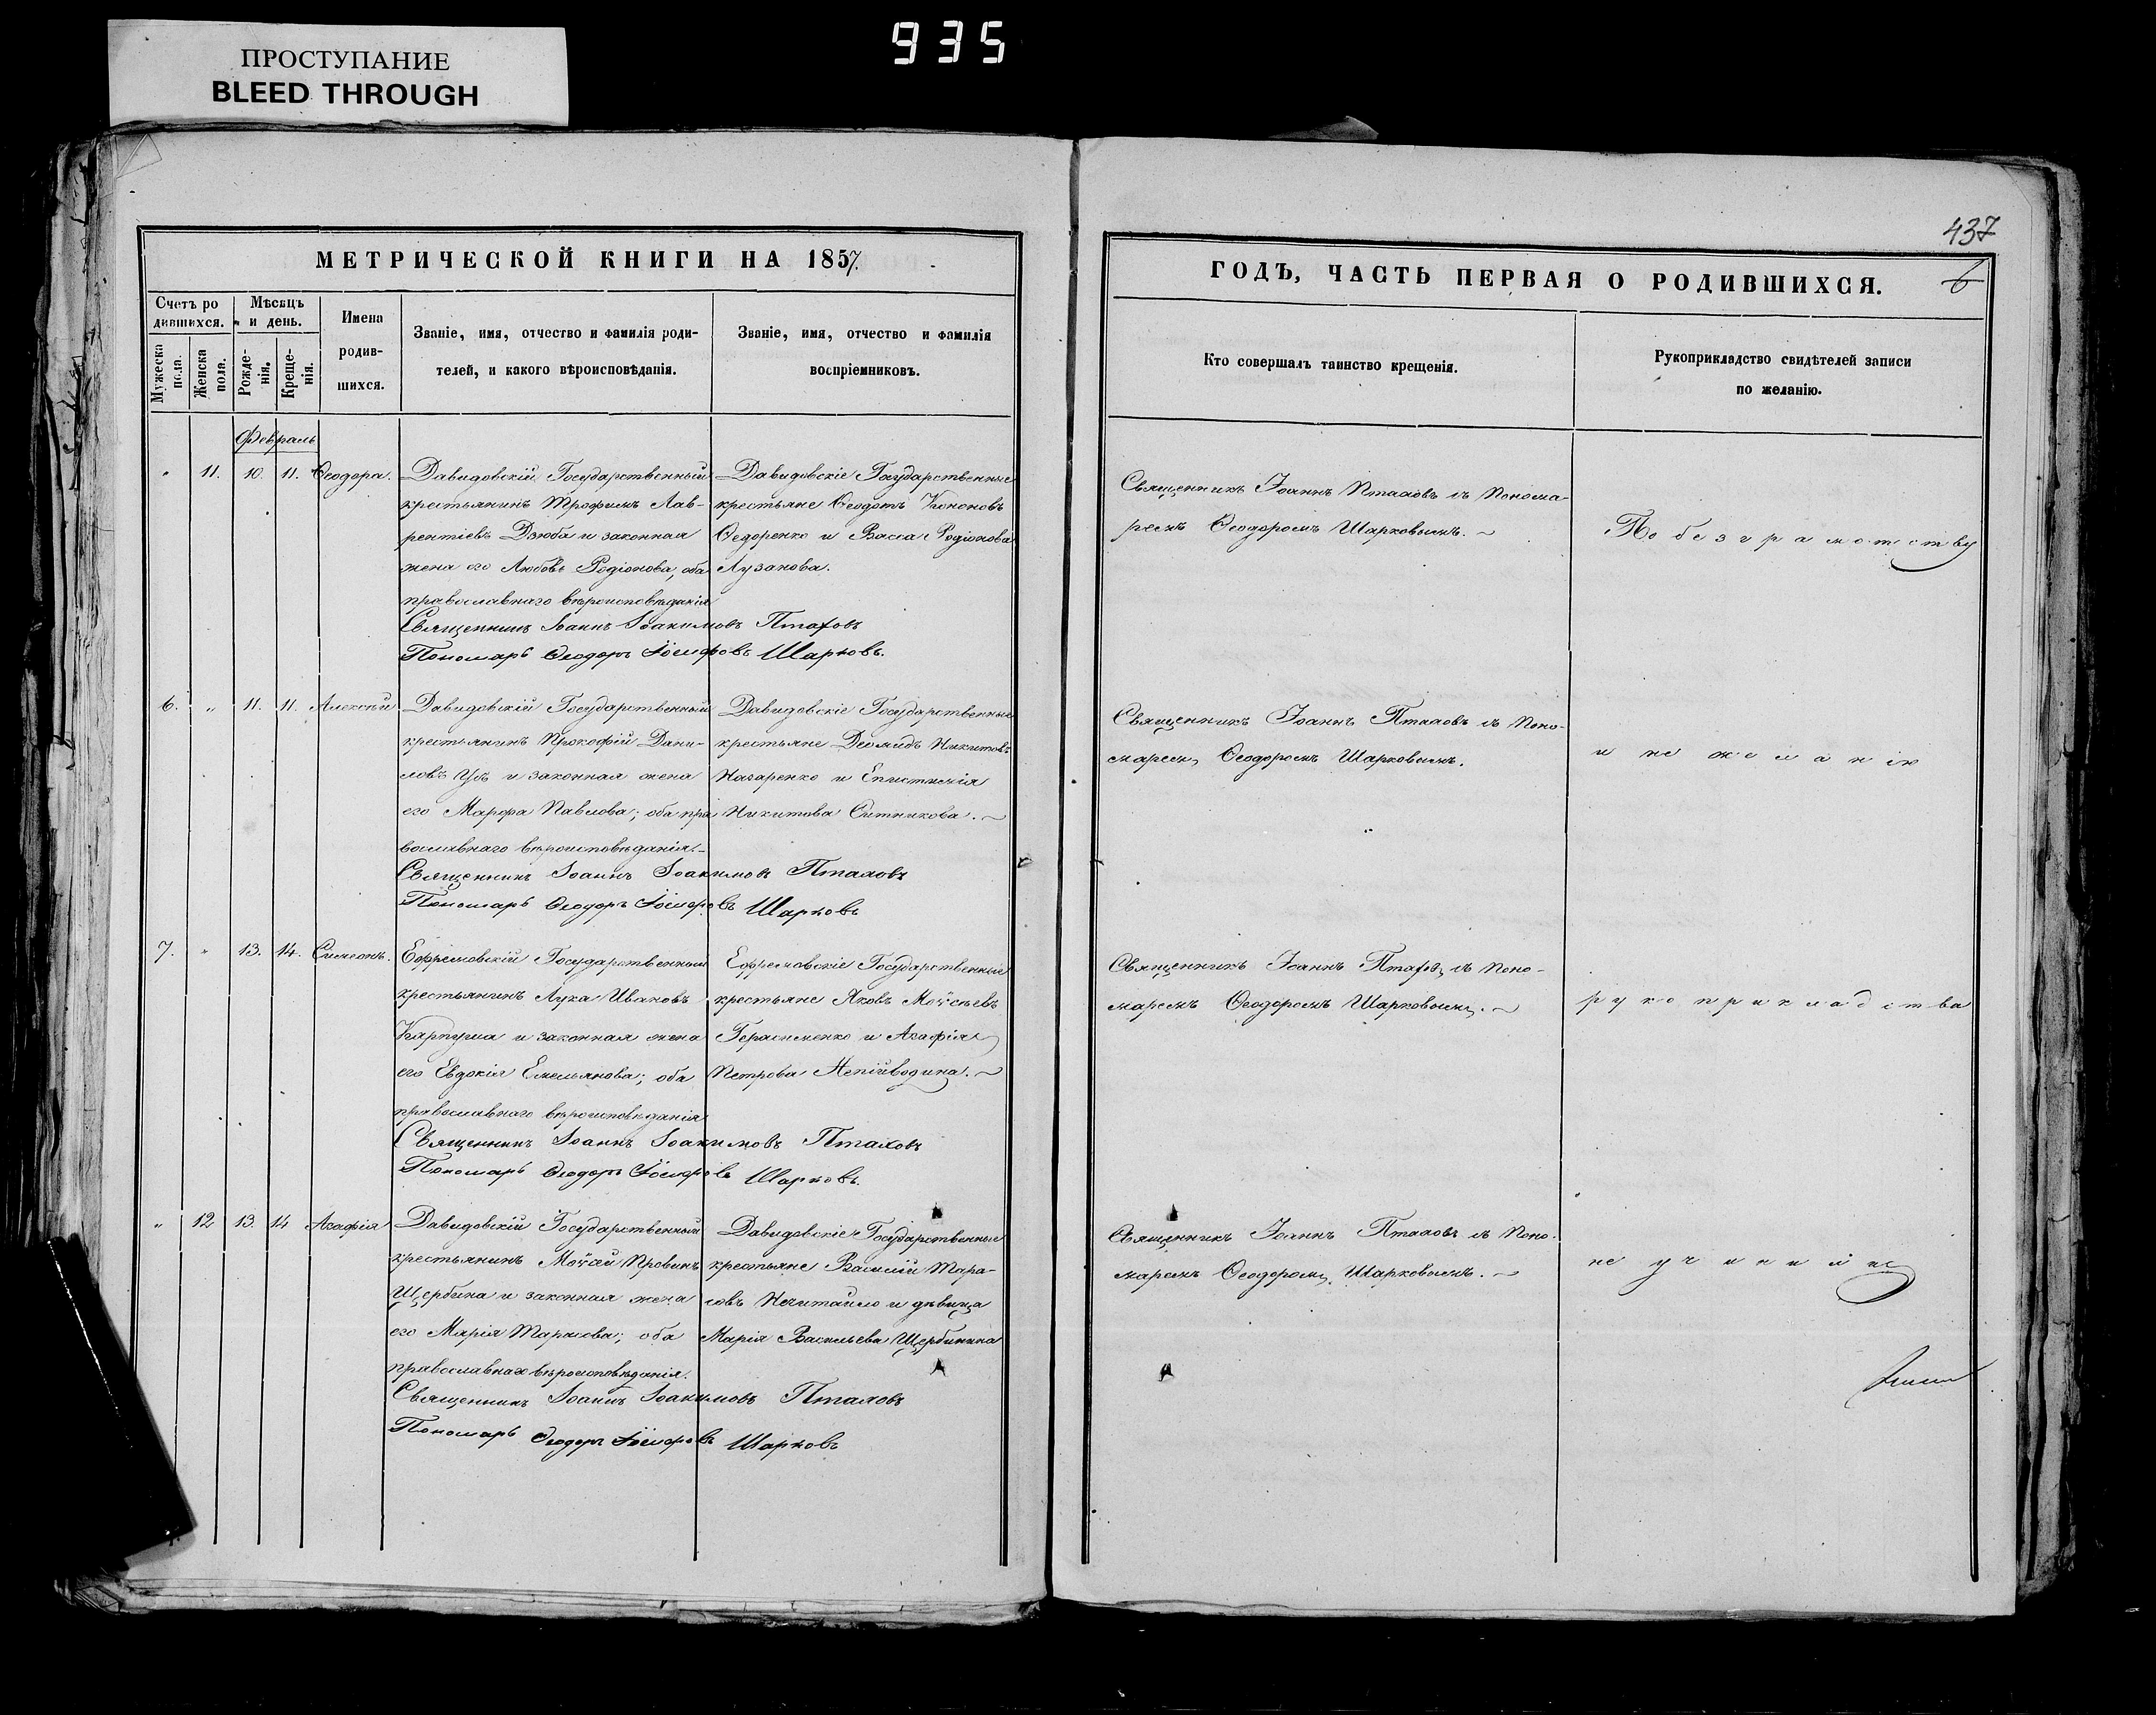 ПРОСТУПАНИЕ
BLEED THROUGH
935
МЕТРИЧЕСКОЙ КНИГИ НА 1857.
Счетъ ро
дившихся.
Мѣсяцъ
и день.
Мужеска пола.
Женска пола.
Рожде-
нія.
Креще-
нія.
Имена
родив-
шихся.
Званіе, имя, отчество и фамилія роди-
телей, и какого вѣроисповѣданія.
Званіе, имя, отчество и фамилія
воспріемниковъ.
Февраль
" 11. 10. 11. Ѳеодора.
Давидовскій Государственный
крестьянинъ Трофимъ Лав-
рентіевъ Дзюба и законная
жена его Любовь Родіонова, оба
православнаго вѣроисповѣданія
Давидовскіе Государственные
крестьяне Ѳеодотъ Кононовъ
Ѳедоренко и Васса Родіонова
Лузанова.
Священникъ Іоаннъ Іоакимовъ Птаховъ
Пономарь Ѳеодоръ Іосифовъ Шарковъ.
6. " 11. 11. Алексѣй
Давидовскій Государственный
крестьянинъ Прокофій Дани-
ловъ и законная жена
его Марфа Павлова; оба пра
вославнаго вѣроисповѣданія.
Давидовскіе Государственные
крестьяне Деомидъ Никитовъ
Назаренко и Епистимія
Никитова Ситникова.
Священникъ Іоаннъ Іоакимовъ Птаховъ
Пономарь Ѳеодоръ Іосифовъ Шарковъ
7. " 13. 14. Симеонъ.
Ефремовскій Государственный
крестьянинъ Лука Ивановъ
Карпуша и законная жена
его Евдокія Емельянова; оба
православнаго вѣроисповѣданія
Ефремовскіе Государственные
крестьяне Яковъ Моѵсѣевъ
Герасименко и Агафія
Петрова Непійводина.
Священникъ Іоаннъ Іоакимовъ Птаховъ
Пономарь Ѳеодоръ Іосифовъ Шарковъ.
" 12 13. 14 Агафія
Давидовскій Государственный
крестьянинъ Моѵсей Провинъ
Щербина и законная жена
его Марія Тарасова; оба
православнаго вѣроисповѣданія.
Давидовскіе Государственные
крестьяне Василій Тара-
совъ Нечитайло и дѣвица
Марія Васильева Щербинина
Священникъ Іоаннъ Іоакимовъ Птаховъ
Пономарь Ѳеодоръ Іосифовъ Шарковъ
437
6
ГОДЪ, ЧАСТЬ ПЕРВАЯ О РОДИВШИХСЯ.
Кто совершалъ таинство крещенія.
Рукоприкладство свидѣтелей записи
по желанію.
Священникъ Іоаннъ Птаховъ съ Понома-
ремъ Ѳеодоромъ Шарковымъ.
По безграмотству
Священникъ Іоаннъ Птаховъ съ Поно-
маремъ Ѳеодоромъ Шарковымъ.
и не желанію
Священникъ Іоаннъ Птаховъ съ Поно-
маремъ Ѳеодоромъ Шарковымъ.
рукоприкладства
Священникъ Іоаннъ Птаховъ съ Поно-
маремъ Ѳеодоромъ Шарковымъ.
не учинили